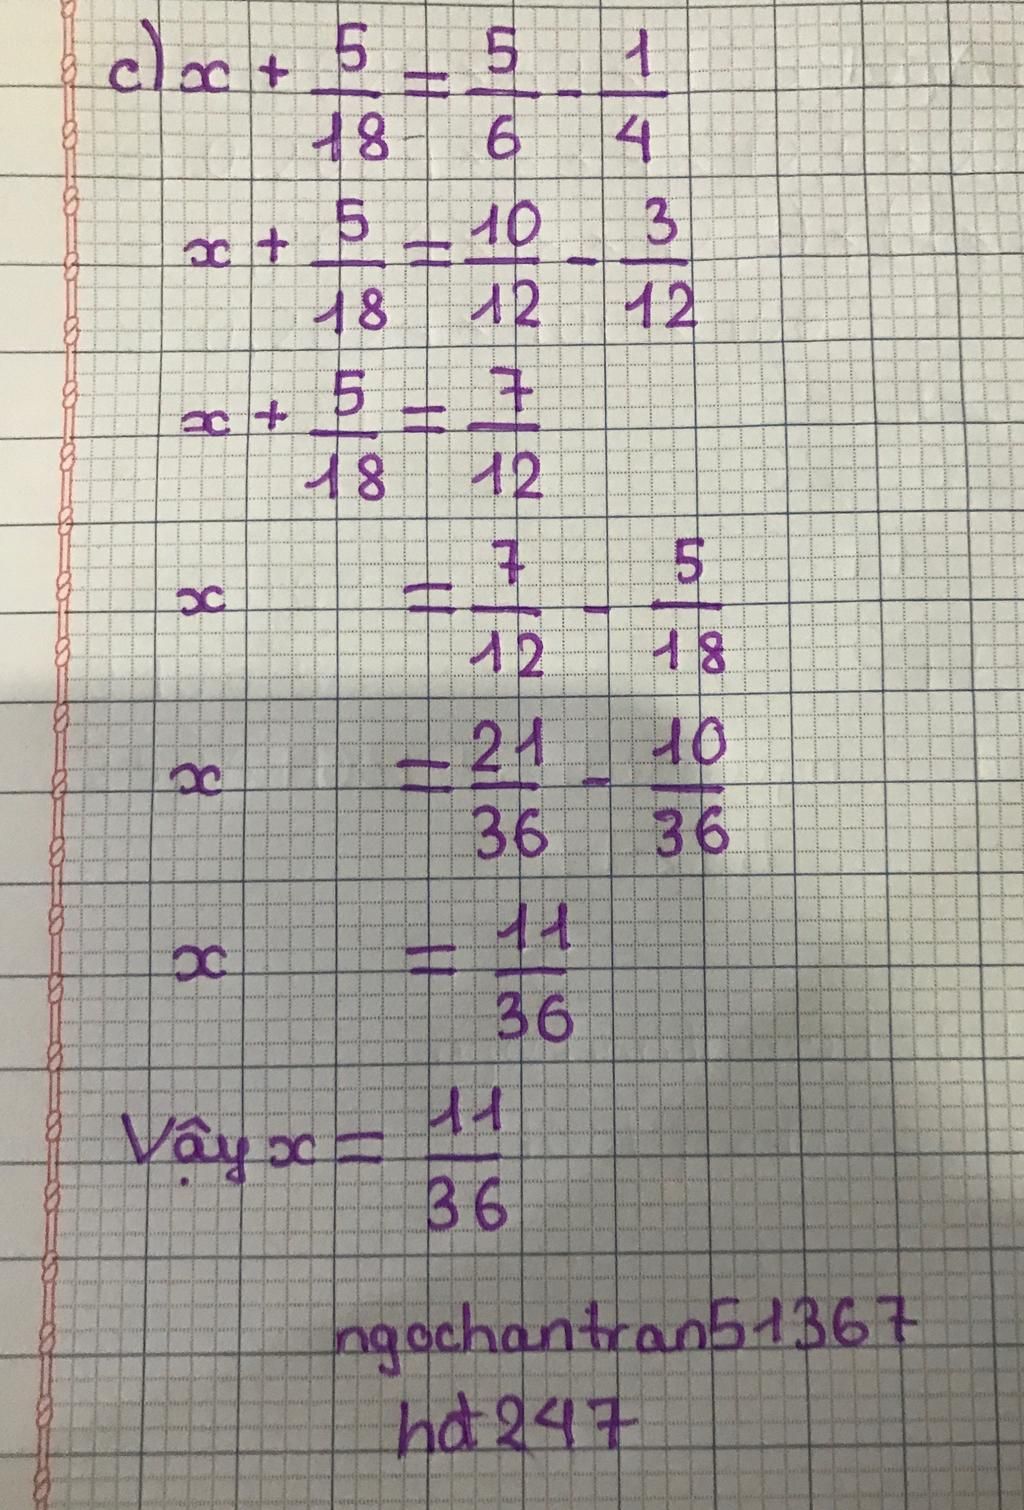 c) x + 5/18 = 5/6 - 1/4
x + 5/18 = 10/12 - 3/12
x + 5/18 = 7/12
x = 7/12 - 5/18
x = 21/36 - 10/36
x = 11/36
Vậy x = 11/36
ngochantran51367
hdt247